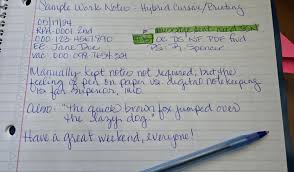 Sample Work Notes - Hybrid Cursive/Printing
05/17/24
RPA-0001 2nd
000 123 4567890
EE Jane Doe
PS: B Spencer
Manually-kept notes not required, but the
feeling of pen on paper vs. digital notekeeping
is far superior, IMO.
Also: "the quick brown fox jumped over
the lazy dog."
Have a great weekend, everyone!